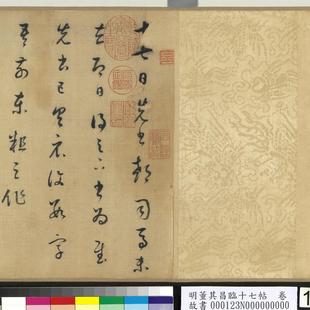 十七日先書郗司馬未
去即日得足下書為慰
先書以具示復數字
吾前東粗足作
明董其昌臨十七帖 卷
故書000123N000000000
1